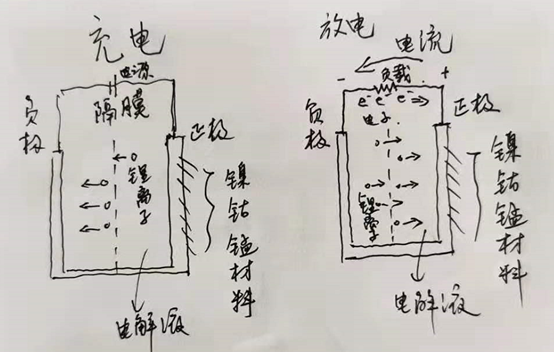 充电
电源
隔膜
负极
正极
锂离子
镍钴锰材料
电解液
放电
电流
- 负载 +
e⁻ e⁻ e⁻
电子
负极
正极
锂离子
镍钴锰材料
电解液